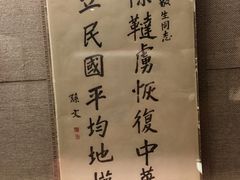 毅生同志
除韃虜恢復中華
立民國平均地權
孫文